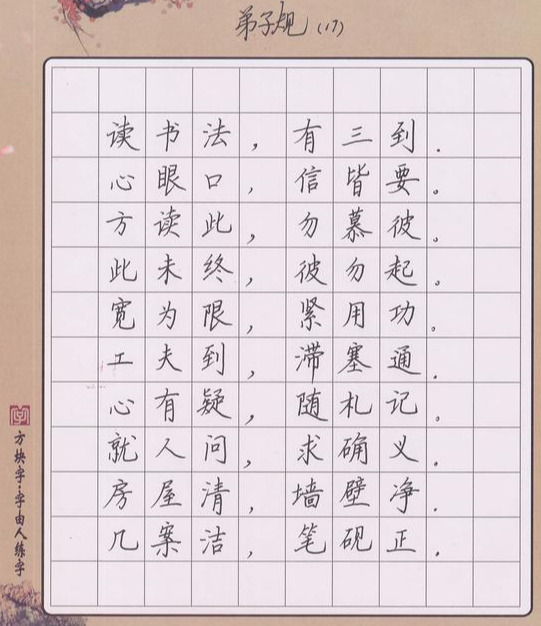 弟子规（17）
读书法，有三到.
心眼口，信皆要。
方读此，勿慕彼。
此未终，彼勿起。
宽为限，紧用功。
工夫到，滞塞通.
心有疑，随札记。
就人问，求确义.
房屋清，墙壁净.
几案洁，笔砚正.
方块字·字由人练字